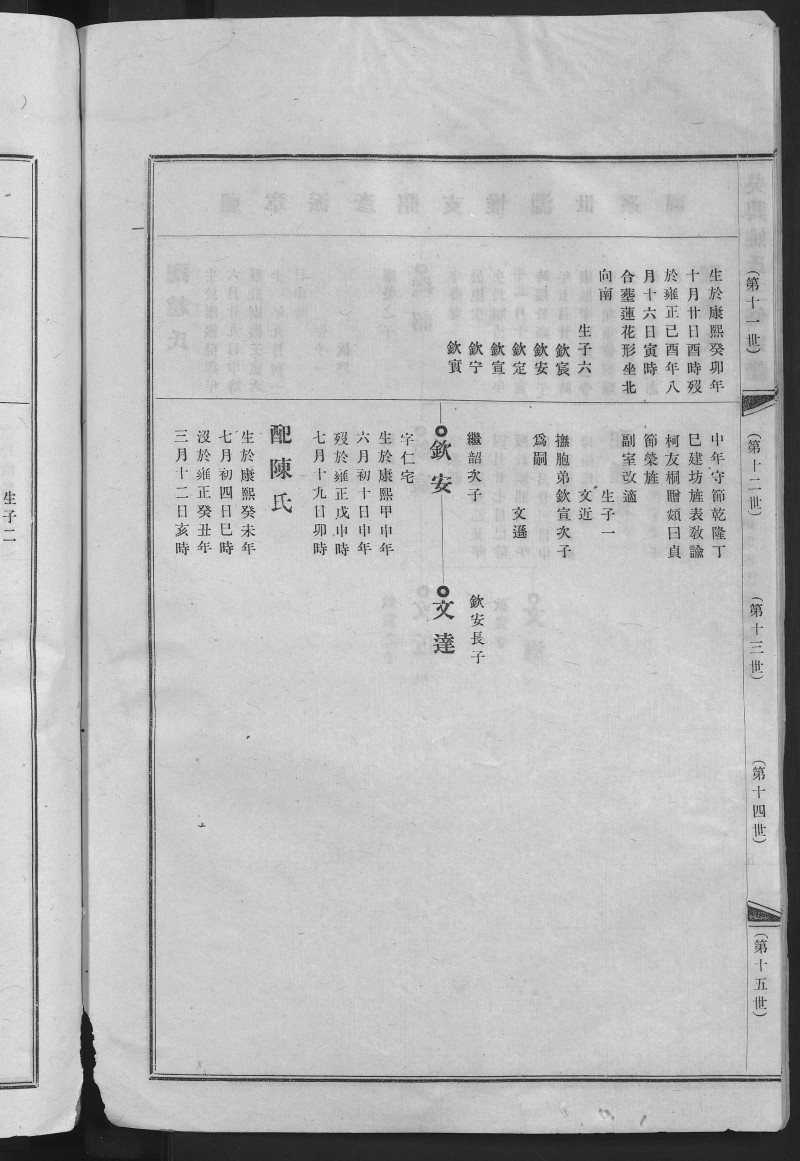 (第十一世)
(第十二世)
(第十三世)
(第十四世)
(第十五世)
生於康熙癸卯年
十月廿日酉時歿
於雍正己酉年八
月十六日寅時
合塟蓮花形坐北
向南
生子六
欽宸
欽安
欽定
欽宣
欽宁
欽賓
中年守節乾隆丁
巳建坊旌表敎諭
柯友桐贈頌曰貞
節榮旌
副室改適
生子一
文近
撫胞弟欽宣次子
爲嗣
文遜
繼韶次子
欽安
字仁宅
生於康熙甲申年
六月初十日申年
歿於雍正戊申時
七月十九日卯時
配陳氏
生於康熙癸未年
七月初四日巳時
沒於雍正癸丑年
三月十二日亥時
欽安長子
文達
生子二